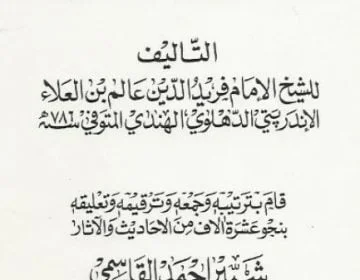 التأليف
للشيخ الإمام فريد الدين عالم بن العلاء
الإندربتي الدهلوي الهندي المتوفى سنة ٧٨٦ﻫ
قام بترتيبه وجمعه وترقيمه وتعليقه
بنحو عشرة آلاف من الأحاديث والآثار
شبير احمد القاسمي